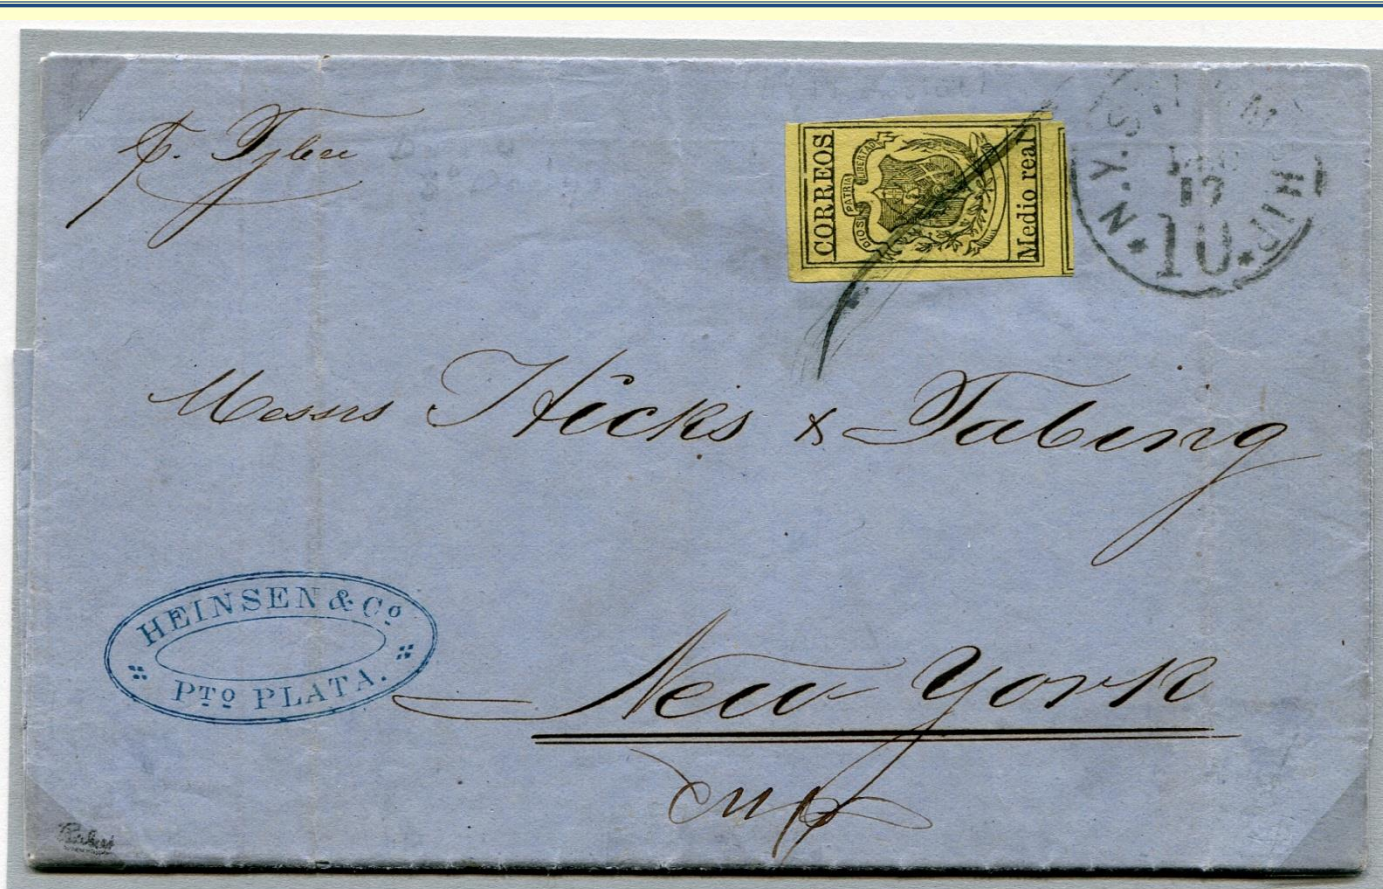 p. Tybee
CORREOS
DIOS PATRIA LIBERTAD
Medio real
N.Y. STEAMSHIP
10
Messrs Hicks & Tabing
HEINSEN & Cº
PTº PLATA.
New York